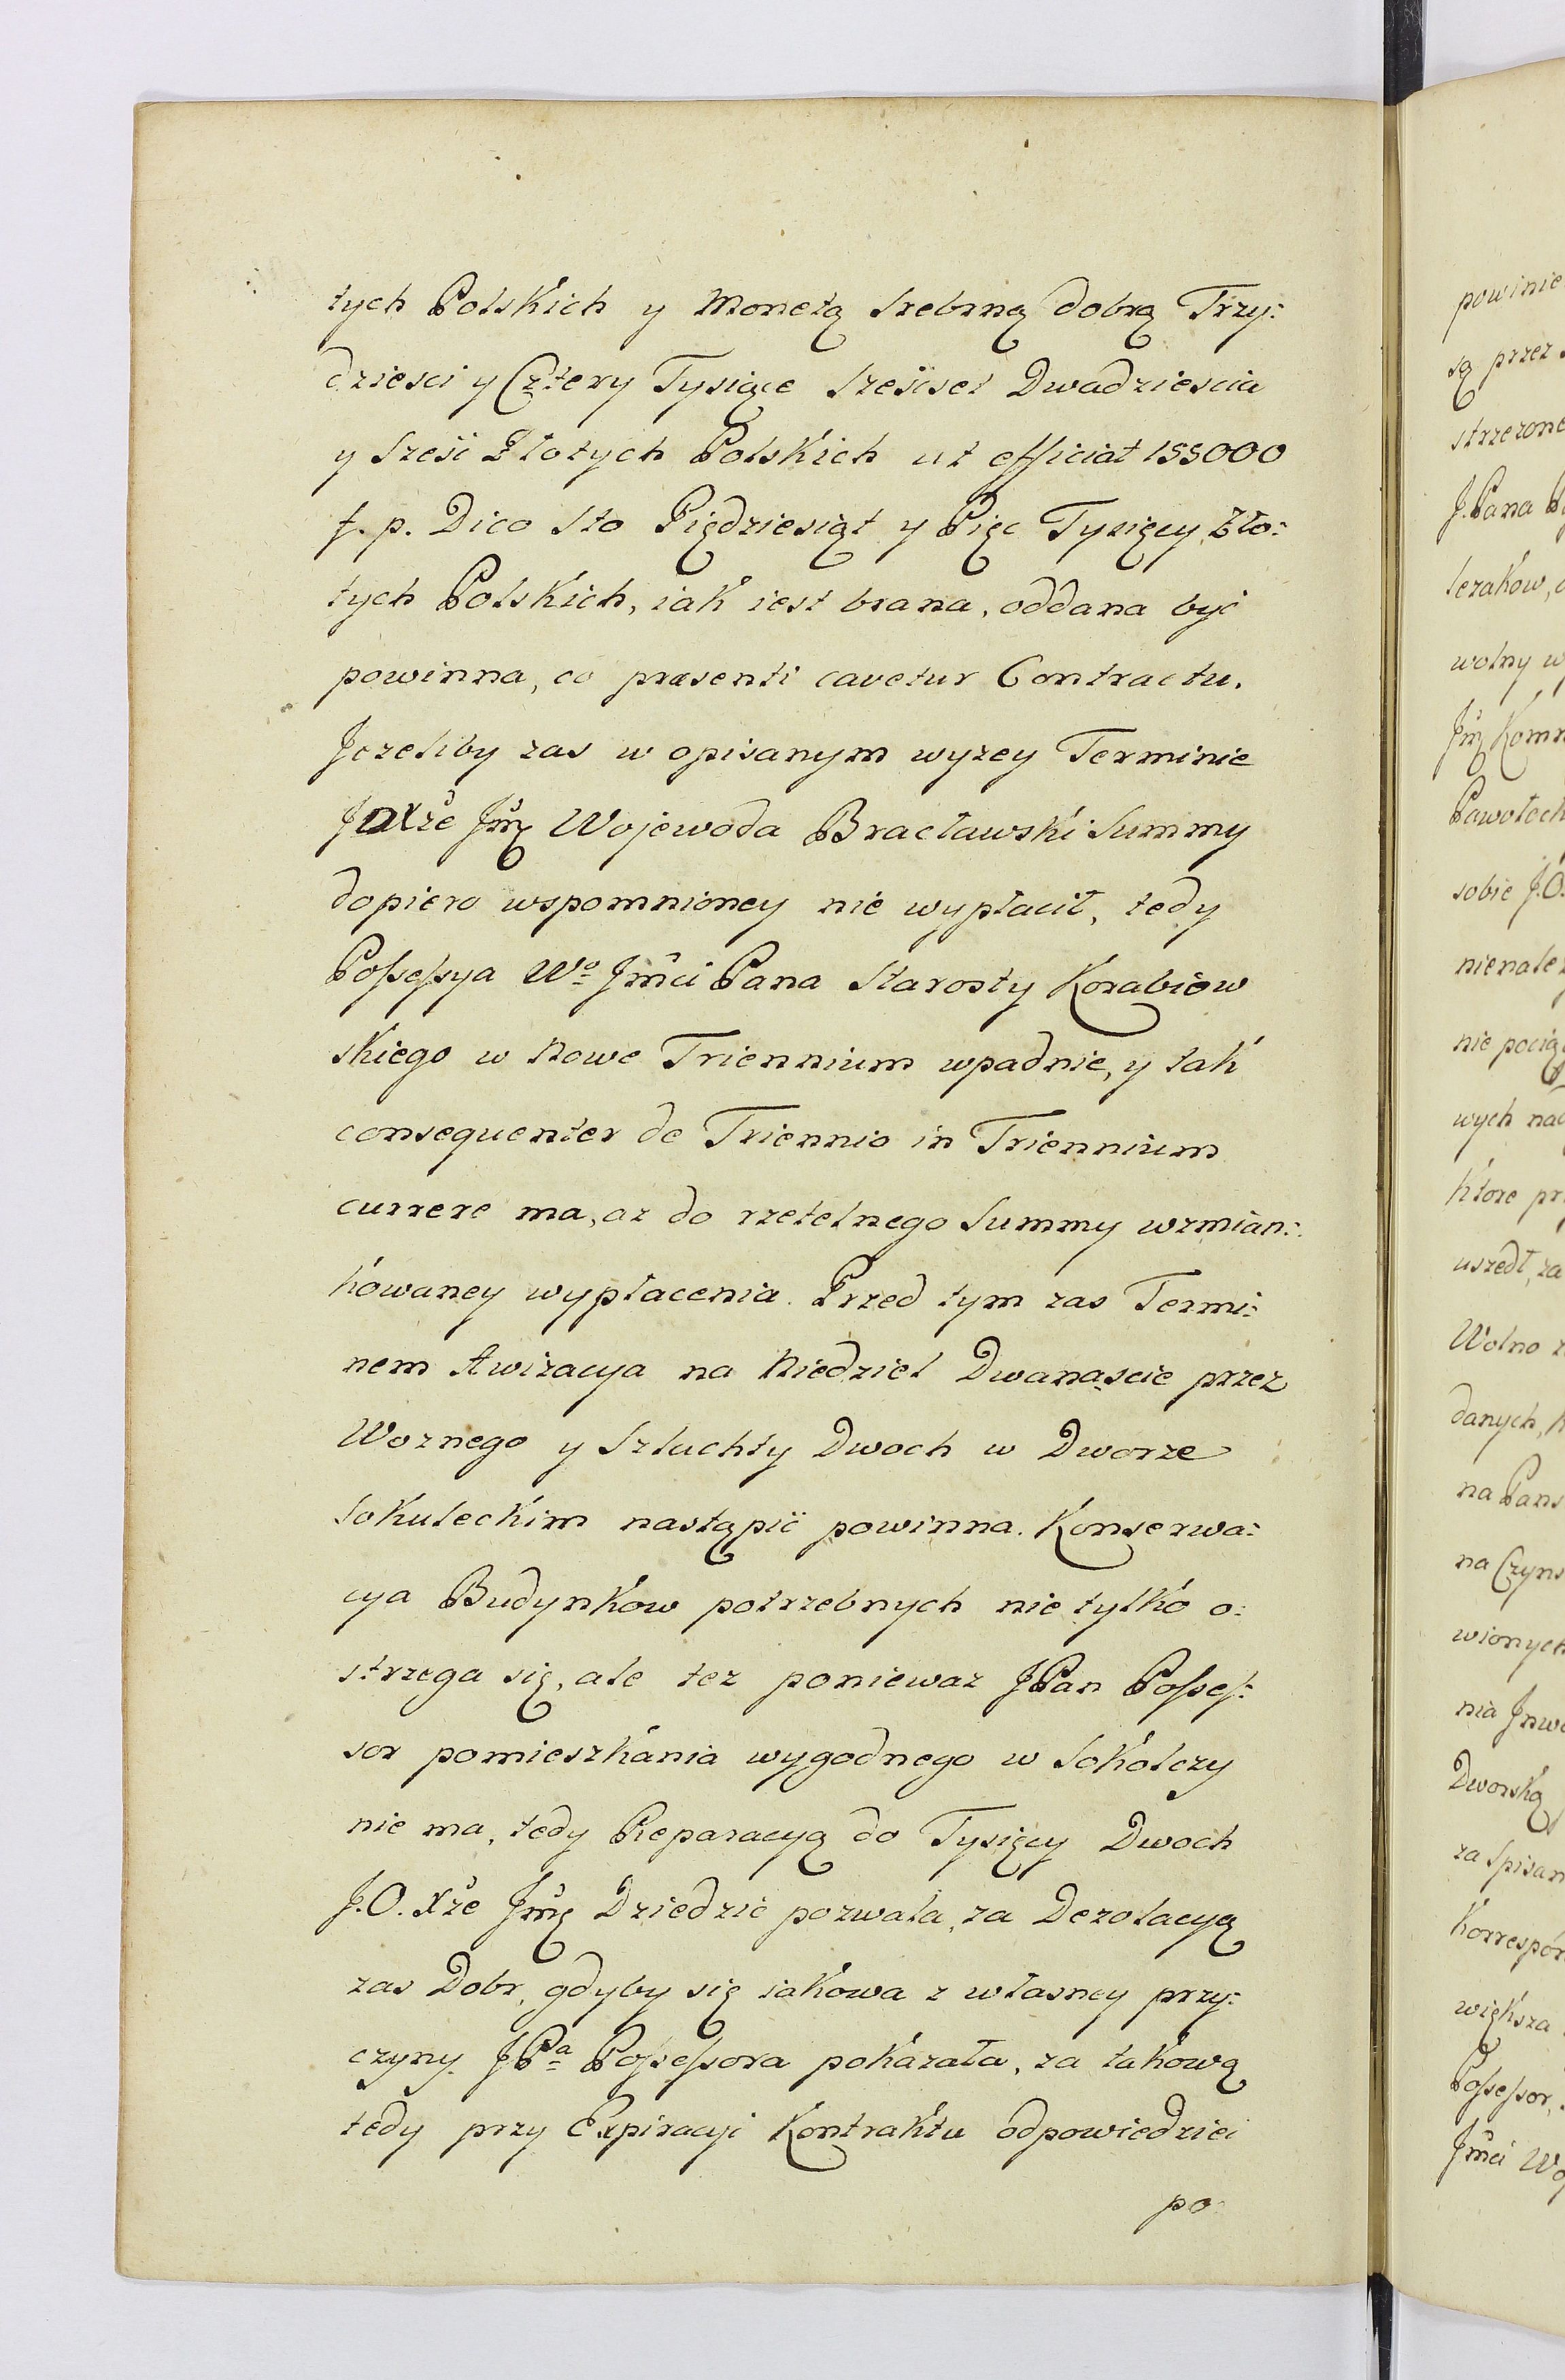 tych Polskich y Monetą srebrną dobrą Trzy:
dziesci y Cztery Tysiące szescset Dwadziescia
y szesc Złotych Polskich ut efficiat 155000
f. p. Dico sto Pięcdziesiąt y Pięc Tysięcy Zło:
tych Polskich, iak iest brana, oddana być
powinna, co præsenti cavetur Contractu.
Jezeliby zas w opisanym wyzey Terminie
JOXże Jmć Wojewoda Bracławski Summy
dopiero wspomnioney nie wypłacił, tedy
Possessya Wo Jmci Pana Starosty Korabiow
skiego w nowe Triennium wpadnie, y tak
consequenter de Triennio in Triennium
currere ma, az do rzetelnego Summy wzmian:
kowaney wypłacenia. Przed tym zas Termi:
nem Awizacya na Niedziel Dwanascie przez
Woznego y Szlachty Dwoch w Dworze
Sokuleckim nastąpić powinna. Konserwa:
cya Budynkow potrzebnych nie tylko o:
strzega się, ale tez poniewaz JPan Posses:
sor pomieszkania wygodnego w Sokolczy
nie ma, tedy Reparacyą do Tysięcy Dwoch
J.O. Xże Jmć Dziedzic pozwala, za Dezolacyą
zas Dobr, gdyby się iakowa z własney przy:
czyny JPa Possessora pokazała, za takową
tedy przy Expiracyi Kontraktu odpowiedziec
po
powinie
są przez
strzezone
J. Pana
wolny w
Jmć Komm
Pawołoch
sobie J.O.
nie pocią
wych nad
ktore pr
uszedł, za
Wolno z
danych, k
na Pans
na Czyns
wionych
nia Jnwe
Dworską
za spisan
Korrespon
większa
Possessor,
Jmci Wo